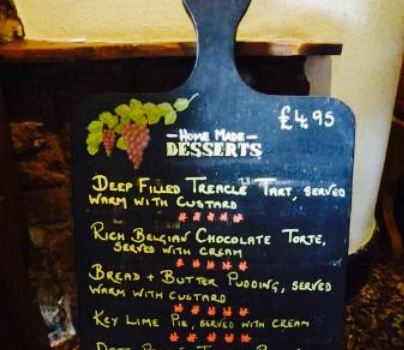 £4.95
- HOME MADE -
DESSERTS
DEEP FILLED TREACLE TART, SERVED
WARM WITH CUSTARD
RICH BELGIAN CHOCOLATE TORTE,
SERVED WITH CREAM
BREAD + BUTTER PUDDING, SERVED
WARM WITH CUSTARD
KEY LIME PIE, SERVED WITH CREAM